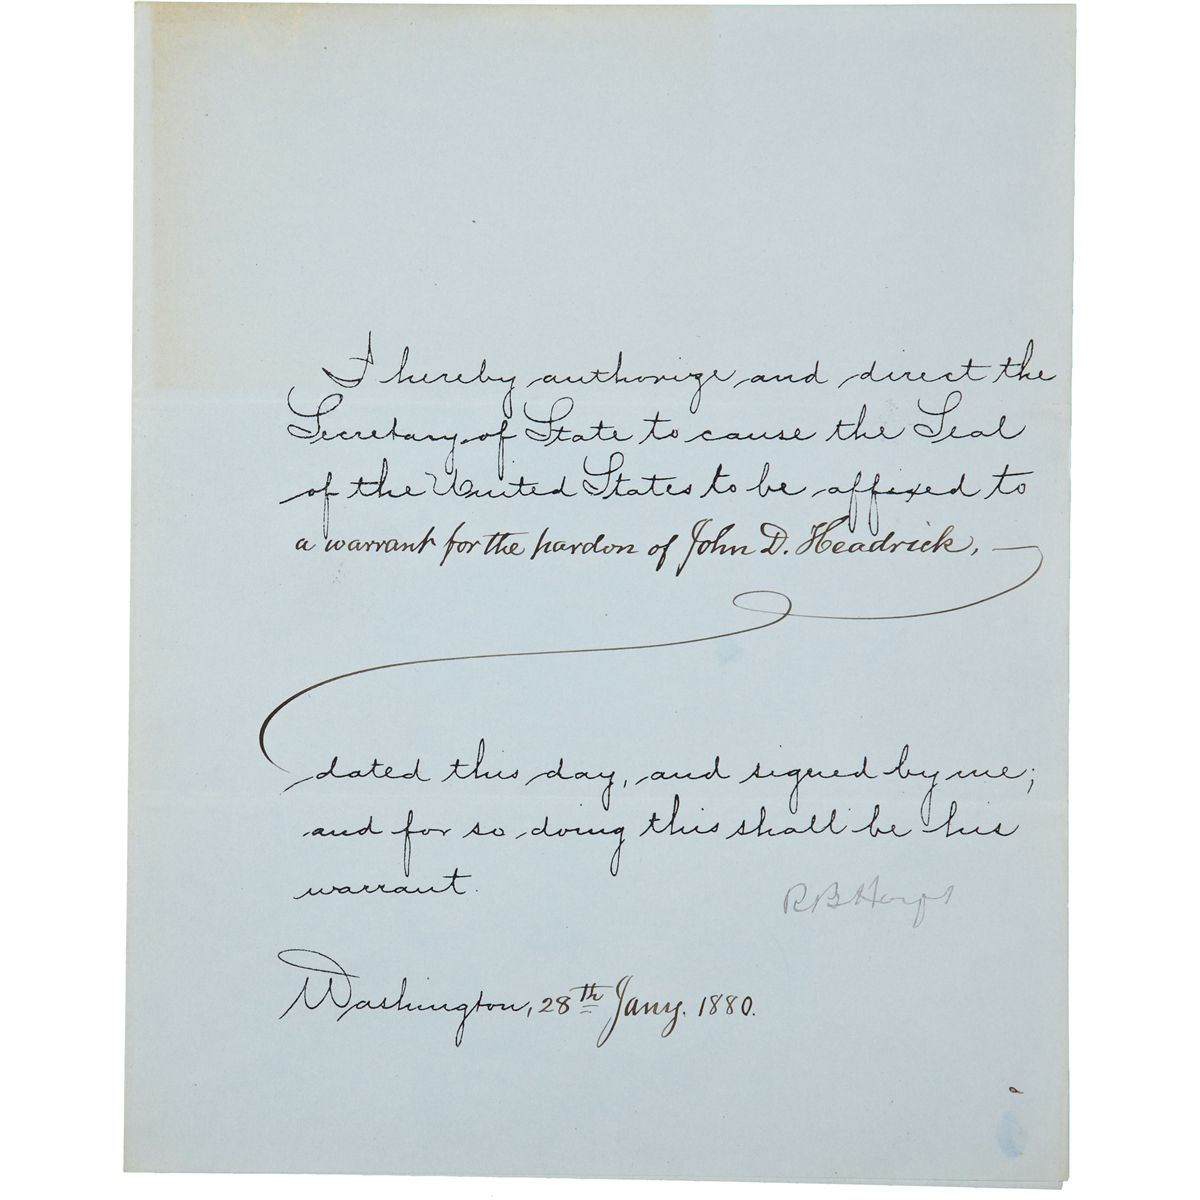 I hereby authorize and direct the
Secretary of State to cause the Seal
of the United States to be affixed to
a warrant for the pardon of John D. Headrick,
dated this day, and signed by me;
and for so doing this shall be his
warrant.
R B Hayes
Washington, 28th Jany. 1880.